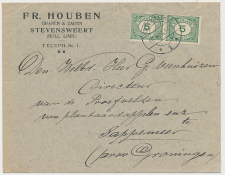 FR. HOUBEN
GRANEN & ZADEN
STEVENSWEERT
(HOLL. LIMB.)
TELEFN. No. 1
5 5
Den WelEd. Heer G.
Directeur
van de Proefvelden
van plantaardappelen enz
te
Sappemeer
(prov. Groningen)